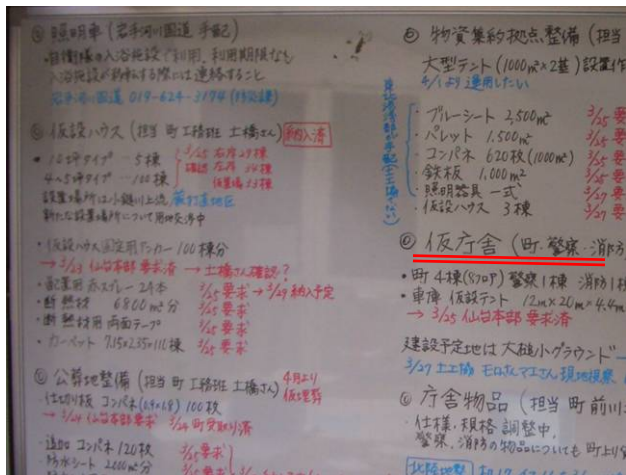 照明車(岩手河川国道 手配)
・自衛隊の入浴施設で利用、利用期限なし
入浴施設が移転する際には連絡すること
岩手河川国道 019-624-3194(防災課)
仮設ハウス(担当 町 工務班 土橋さん) 納入済
・10坪タイプ ―5棟
・4×5坪タイプ ―100棟
3/25 右岸29棟
確認 左岸
設置場所は小鎚川上流
新たな設置場所について用地交渉中
・仮設ハウス固定用アンカー 100棟分
→ 3/23 仙台本部 要求済 → 土橋さん確認?
赤スプレー 24本 3/25要求 → 3/29納入予定
・断熱材 6800m²分 3/25要求
・断熱材用 両面テープ 3/25要求
・カーペット 3/25要求
公募地整備(担当 町 工務班 土橋さん) 4月より
仕切り板 コンパネ 100枚
→ 3/24 仙台本部要求 3/24 町受取り済
・追加 コンパネ 120枚 3/25要求
防水シート 2000m²分
物資集約拠点整備(担当
大型テント(1000m²×2基)設置
4/1より運用したい
・ブルーシート 2,500m² 3/25要
・パレット 1,500m² 3/25要
・コンパネ 620枚(1000m²) 3/25要
・鉄板 1,000m² 3/25要
・照明器具 一式 3/27要
・仮設ハウス 3棟 3/27要
仮庁舎(町・警察・消防
・町4棟 警察1棟 消防1
・車庫 仮設テント 12m×20m×4.4m
→ 3/25 仙台本部 要求済
建設予定地は大槌小グラウンド
3/27 土工協 現地視察
庁舎物品(担当 町 前川
・仕様・規格 調整中
警察、消防の物品についても 町より